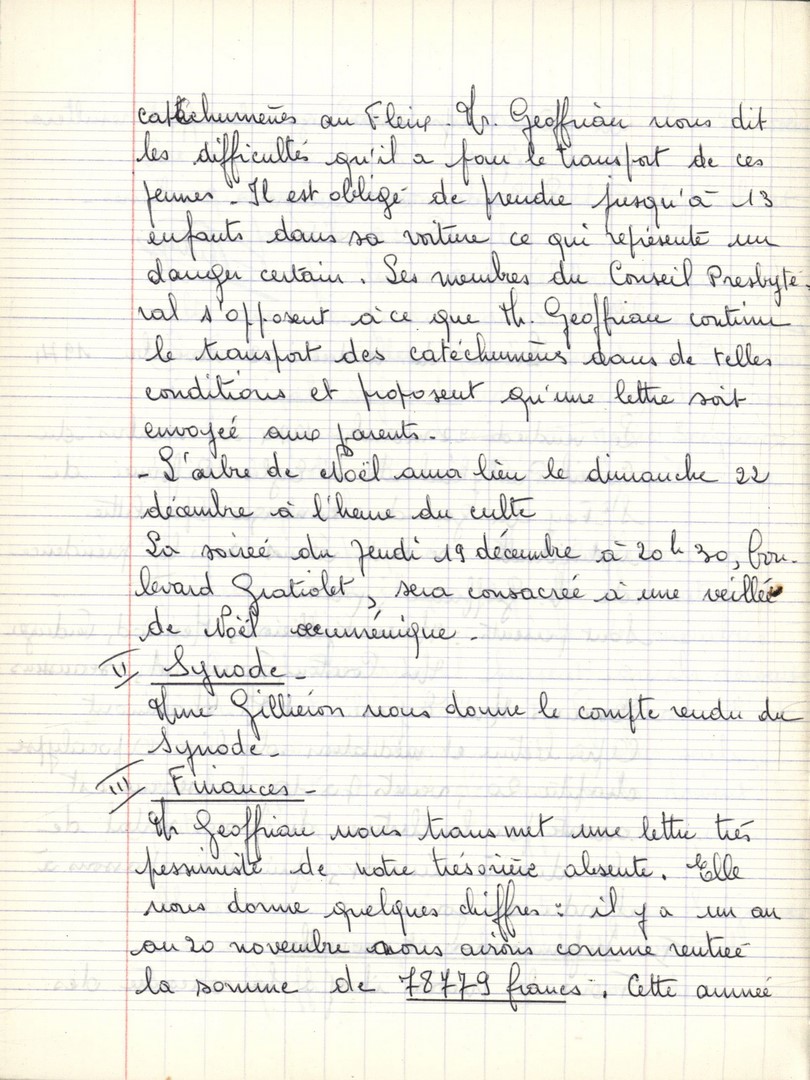 catéchumènes au Fleix. Mr. Geoffriau nous dit
les difficultés qu'il a pour le transport de ces
jeunes - Il est obligé de prendre jusqu'à 13
enfants dans sa voiture ce qui représente un
danger certain. Les membres du Conseil Presbyté-
ral s'opposent à ce que Mr. Geoffriau continue
le transport des catéchumènes dans de telles
conditions et proposent qu'une lettre soit
envoyée aux parents.
- L'arbre de Noël aura lieu le dimanche 22
décembre à l'heure du culte
La soirée du Jeudi 19 décembre à 20 h 30, bou-
levard Gratiolet, sera consacrée à une veillée
de Noël œcuménique.
II Synode -
Mme Gilliéron nous donne le compte rendu du
Synode -
III Finances -
Mr Geoffriau nous transmet une lettre très
pessimiste de notre trésorière absente. Elle
nous donne quelques chiffres : il y a un an
au 20 novembre nous avions comme rentrée
la somme de 78779 francs. Cette année